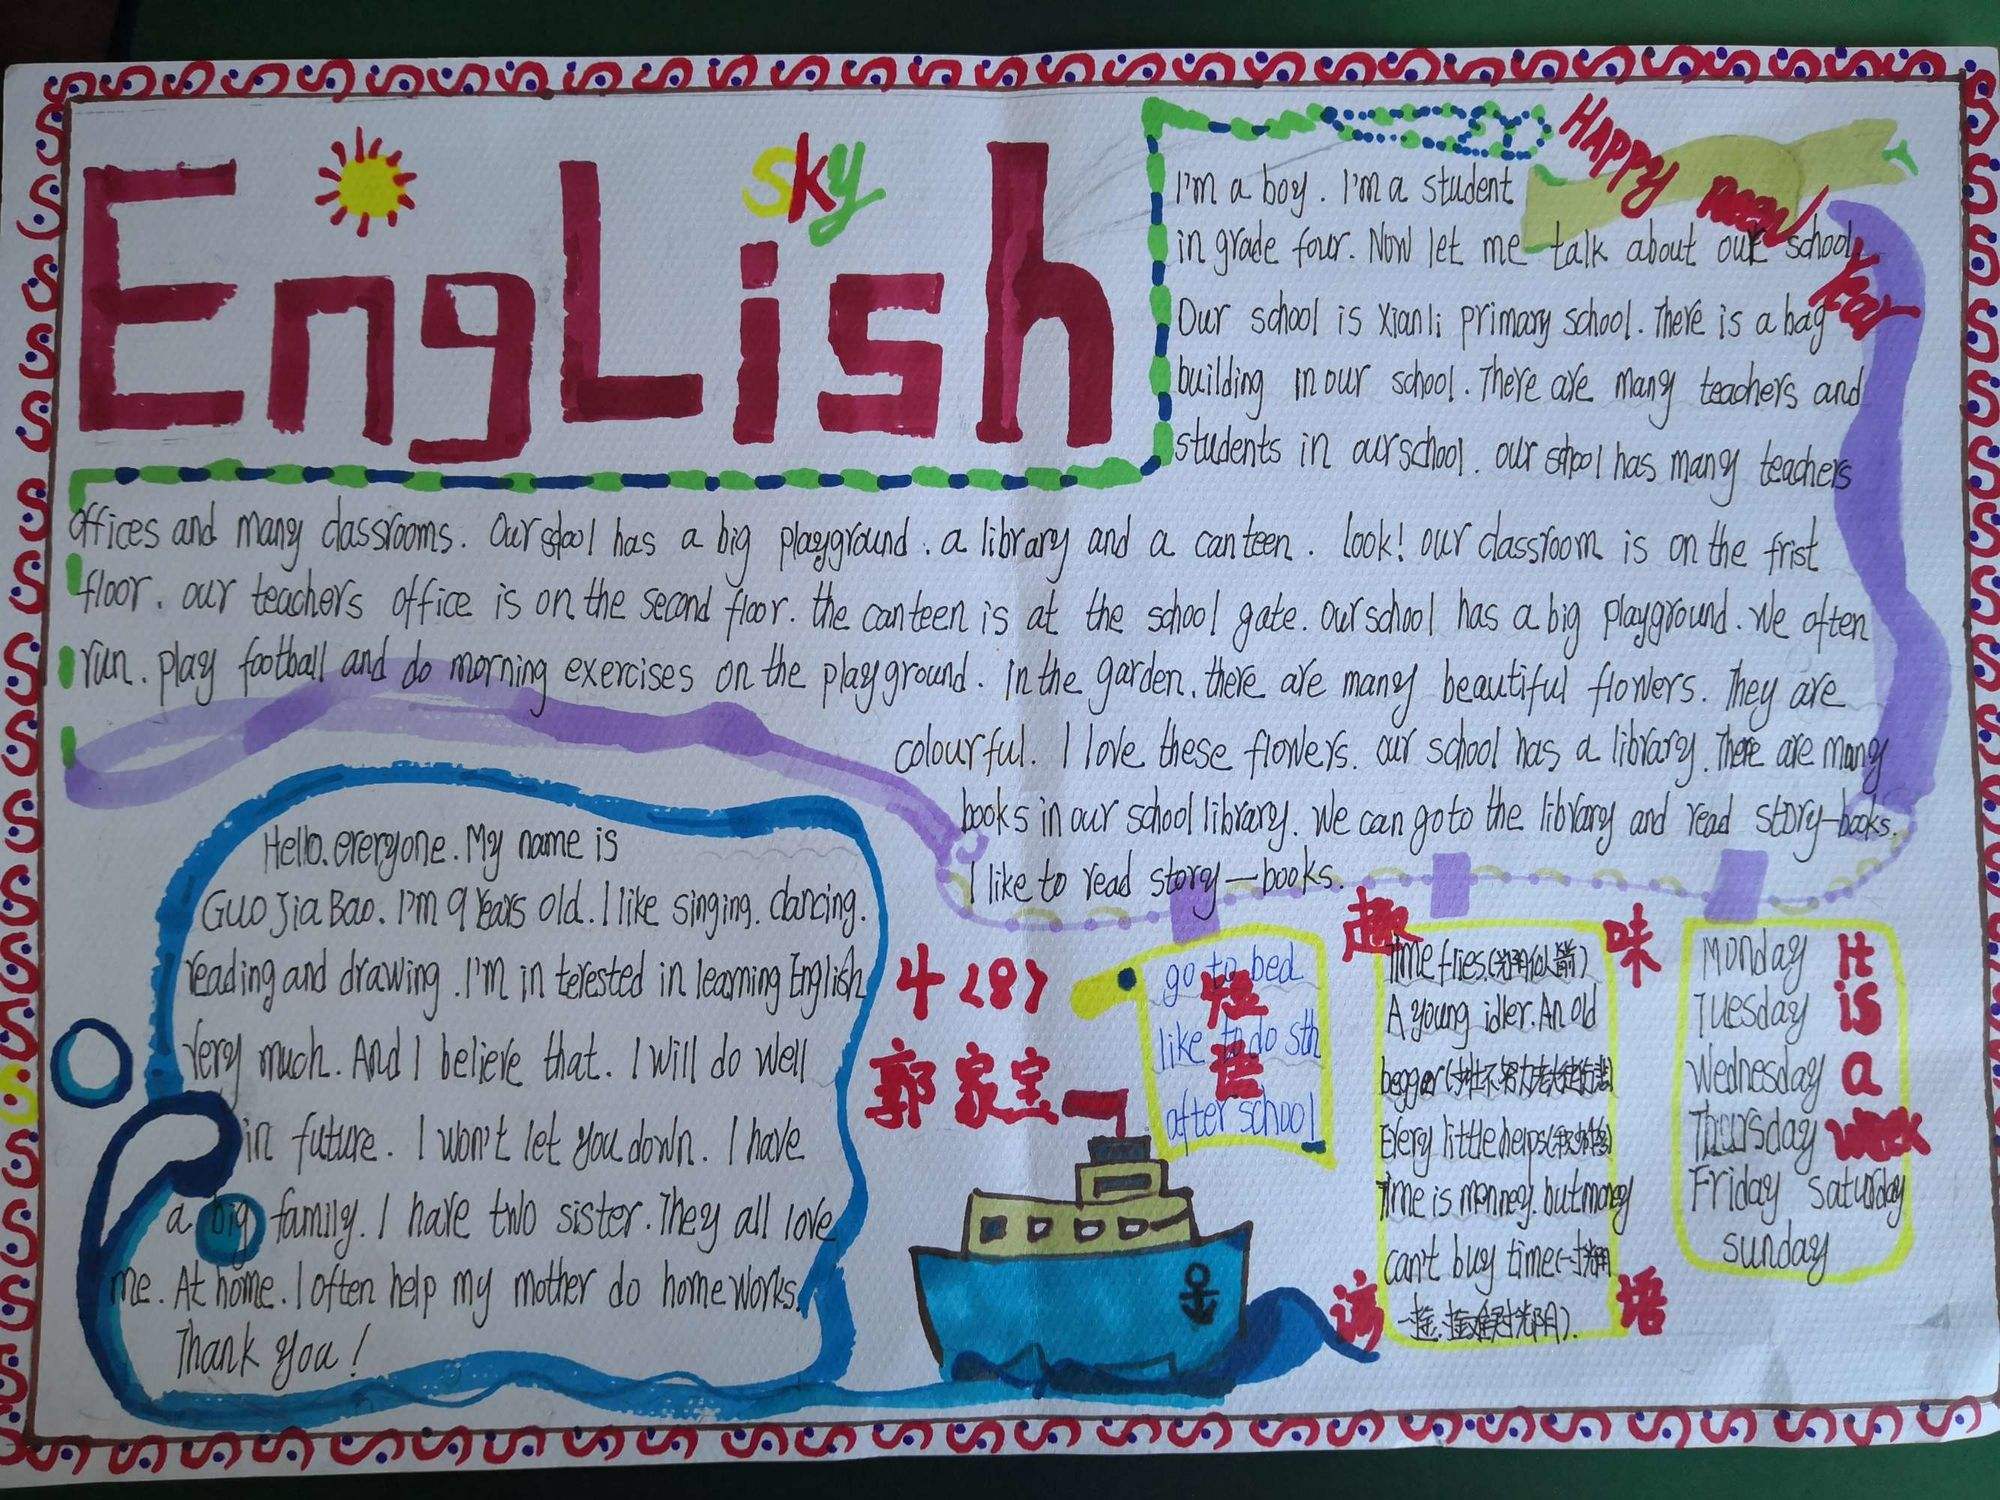 English
sky
Happy new year
I'm a boy. I'm a student
in grade four. Now let me talk about our school.
Our school is Xianli primary school. There is a bag
building in our school. There are many teachers and
students in our school. our school has many teachers
offices and many classrooms. Our school has a big playground. a library and a canteen. Look! our classroom is on the frist
floor. our teachers office is on the second floor. the canteen is at the school gate. our school has a big playground. We often
run. play football and do morning exercises on the playground. in the garden. there are many beautiful flowers. They are
colourful. I love these flowers. our school has a library. There are many
books in our school library. We can go to the library and read story—books.
I like to read story—books.
Hello. everyone. My name is
Guo Jia Bao. I'm 9 Years old. I like singing. dancing.
reading and drawing. I'm in terested in learning English
very much. And I believe that. I will do well
in future. I won't let you down. I have
a big family. I have two sister. They all love
me. At home. I often help my mother do home works.
Thank you!
4〈8〉
郭家宝
短语
go to bed
like to do sth
after school
趣味谚语
Time flies.(光阴似箭)
A young idler. An old
beggar(少壮不努力老大徒伤悲)
Every little helps
Time is menney. but money
can't buy time(一寸光阴
一金.
It is a week
Monday
Tuesday
Wednesday
Thursday
Friday saturday
sunday